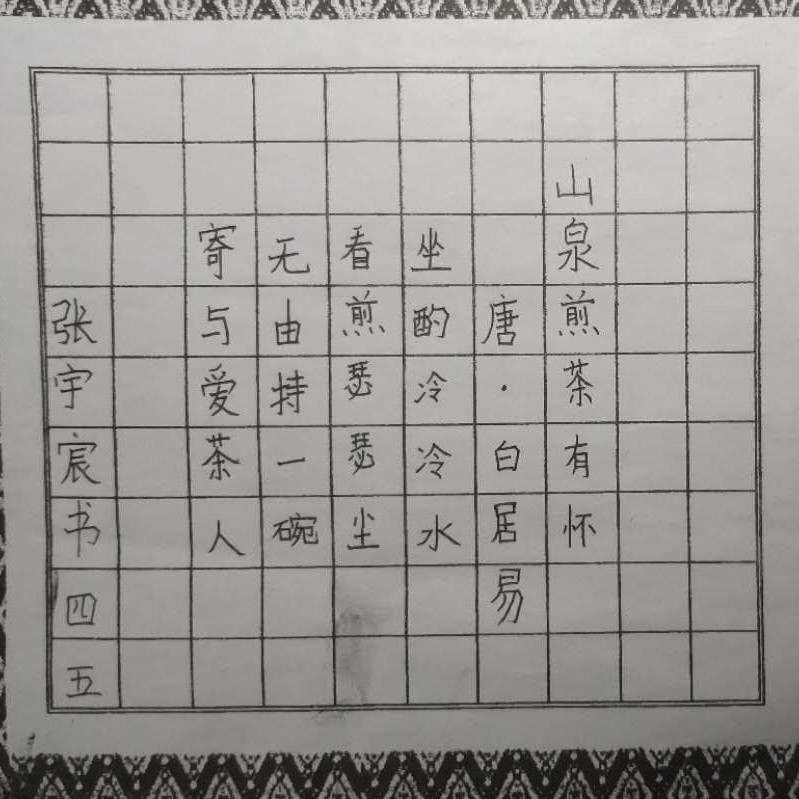 山泉煎茶有怀
唐·白居易
坐酌冷冷水
看煎瑟瑟尘
无由持一碗
寄与爱茶人
张宇宸书四五